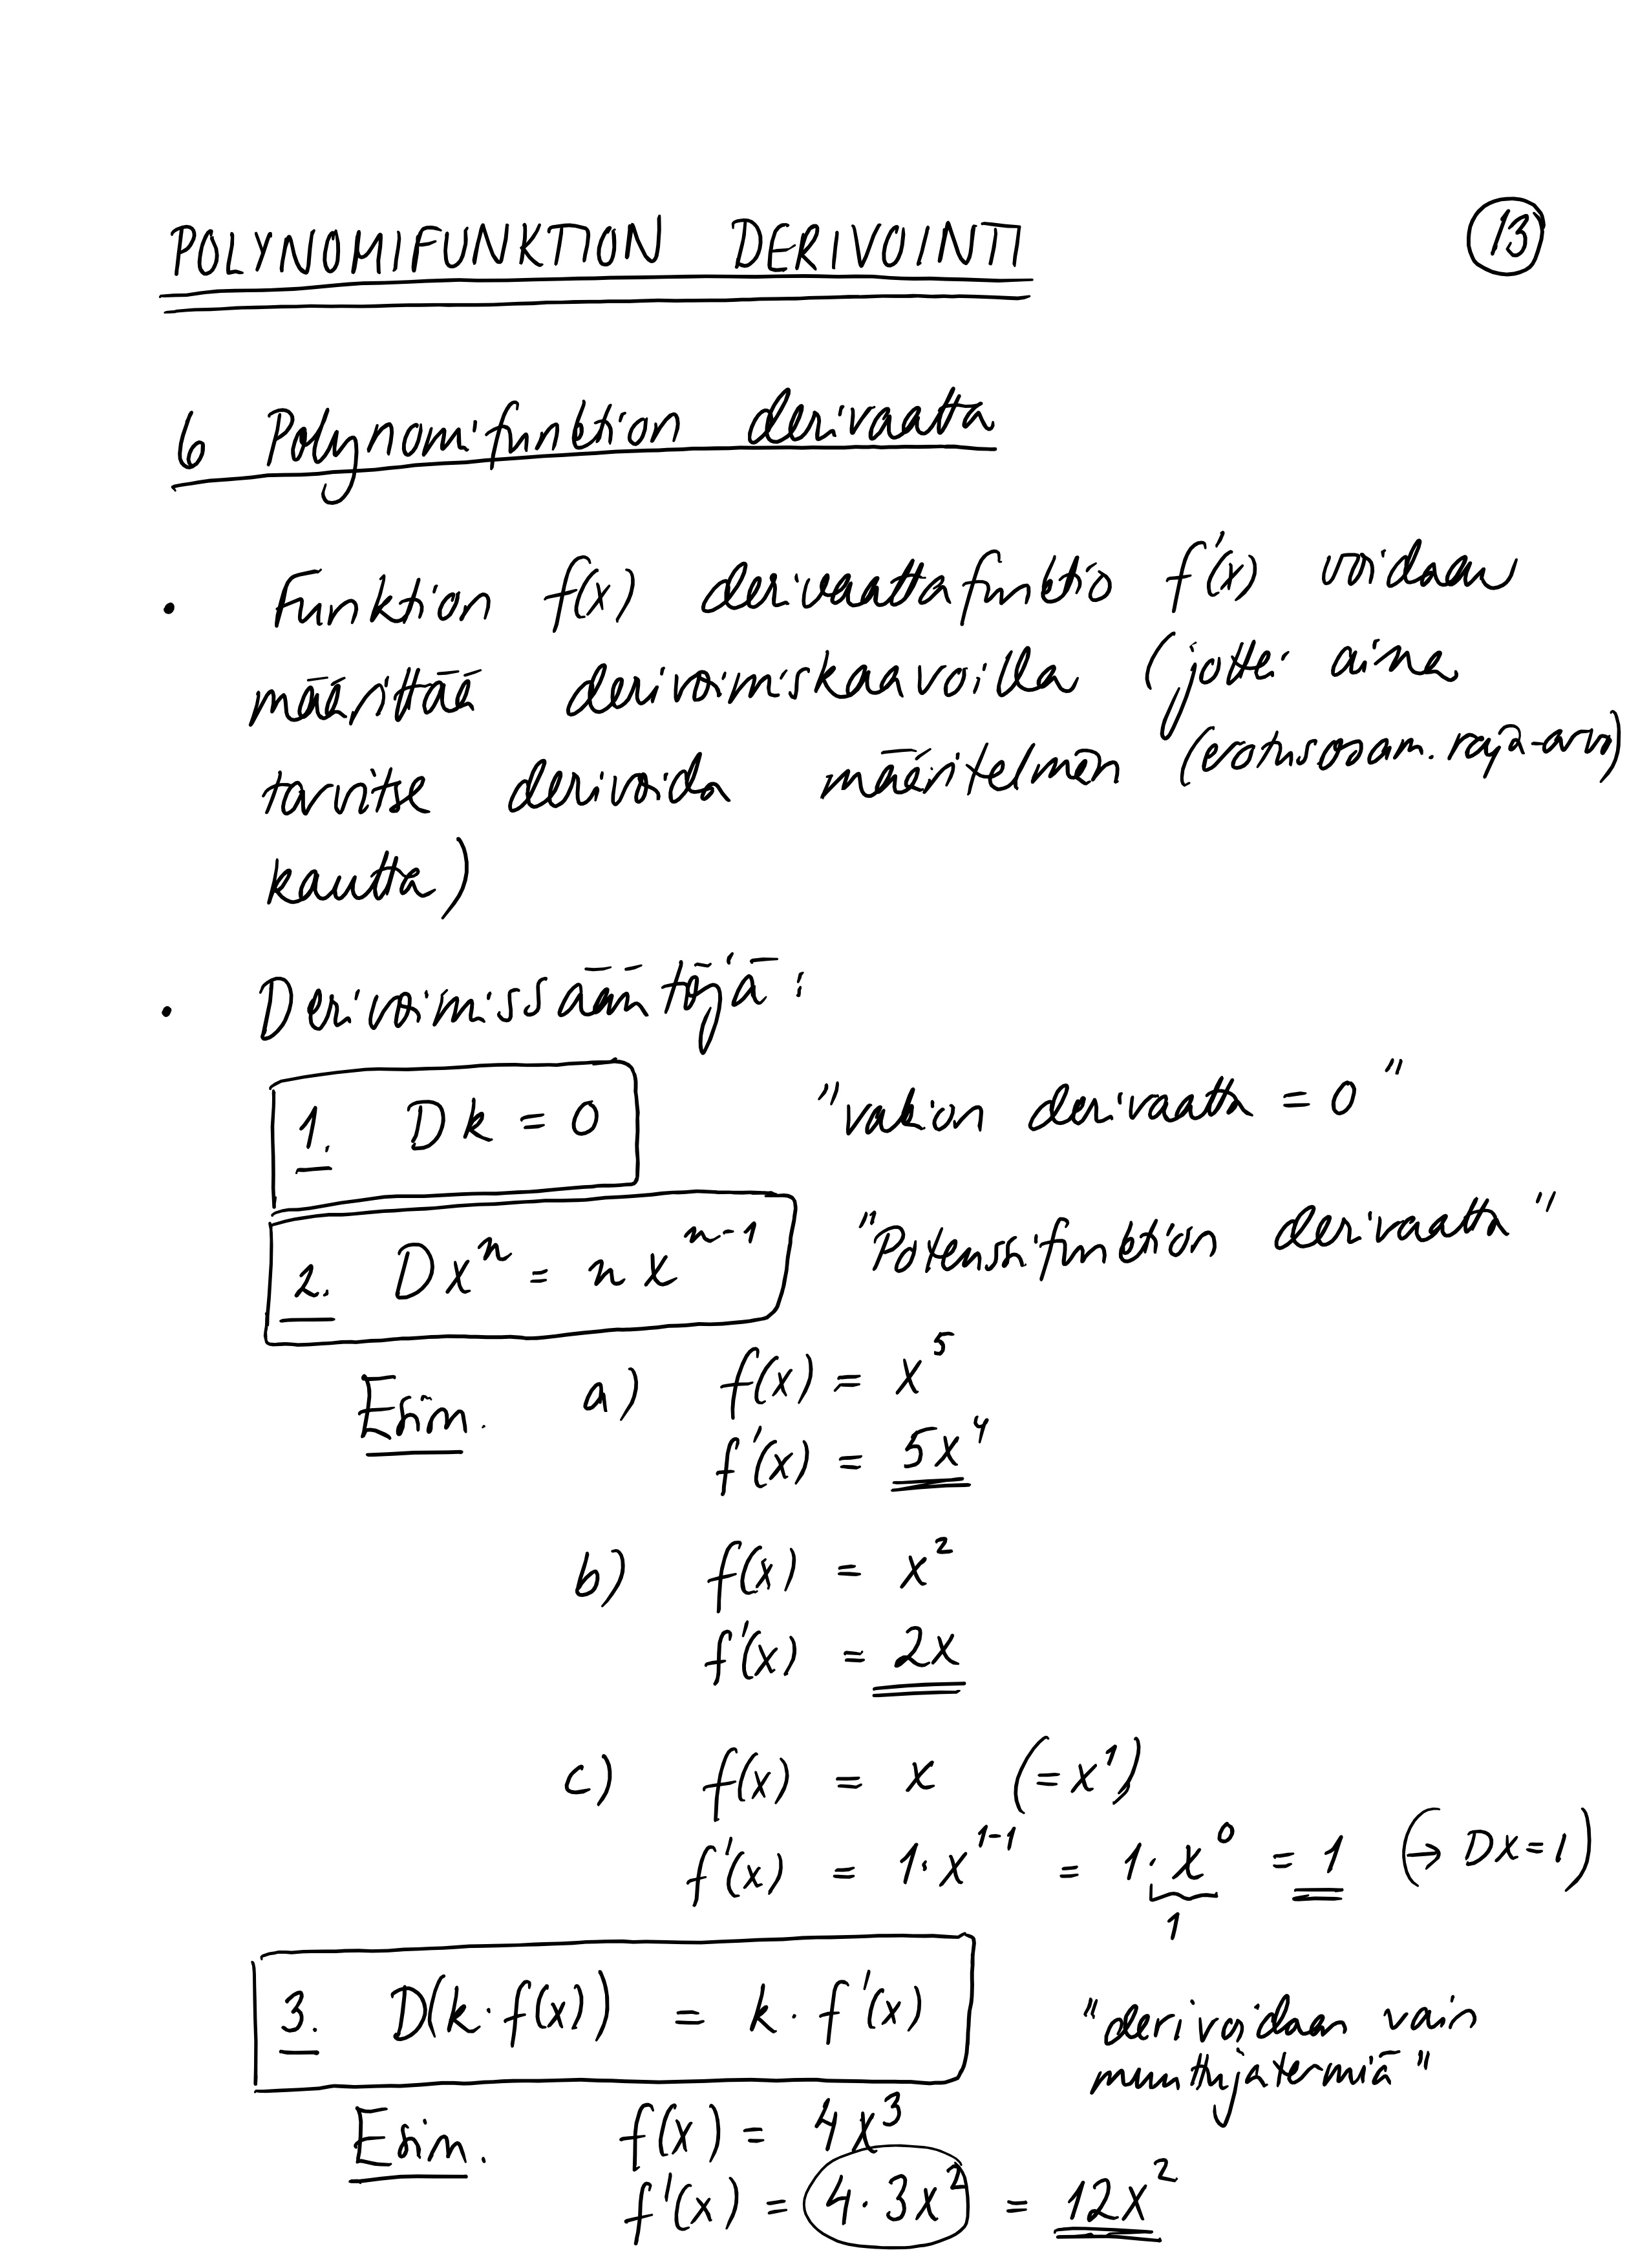 POLYNOMIFUNKTION DERIVOINTI
13
6 Polynomifunktion derivaatta
• Funktion f(x) derivaattafunktio f'(x) voidaan
määrittää derivoimiskaavoilla (jottei aina
tarvitse derivoida määritelmän (erotusosam. raja-arvo)
kautta)
• Derivoimissääntöjä:
1. Dk = 0 "vakion derivaatta = 0"
2. Dxⁿ = nxⁿ⁻¹ "Potenssifunktion derivaatta"
Esim. a) f(x) = x⁵
f'(x) = 5x⁴
b) f(x) = x²
f'(x) = 2x
c) f(x) = x (= x¹)
f'(x) = 1·x¹⁻¹ = 1·x⁰ = 1 (→ Dx = 1)
1
3. D(k·f(x)) = k·f'(x) "derivoidaan vain
muuttujatermiä"
Esim. f(x) = 4x³
f'(x) = 4·3x² = 12x²